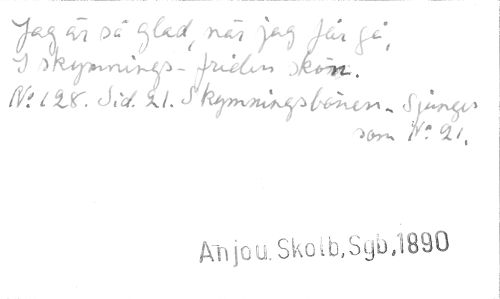 Jag är så glad, när jag får gå,
I skymnings-friden skön.
No 128. Sid. 21. Skymningsbönen. Sjunges
som No 21.
Anjou. Skolb, Sgb, 1890